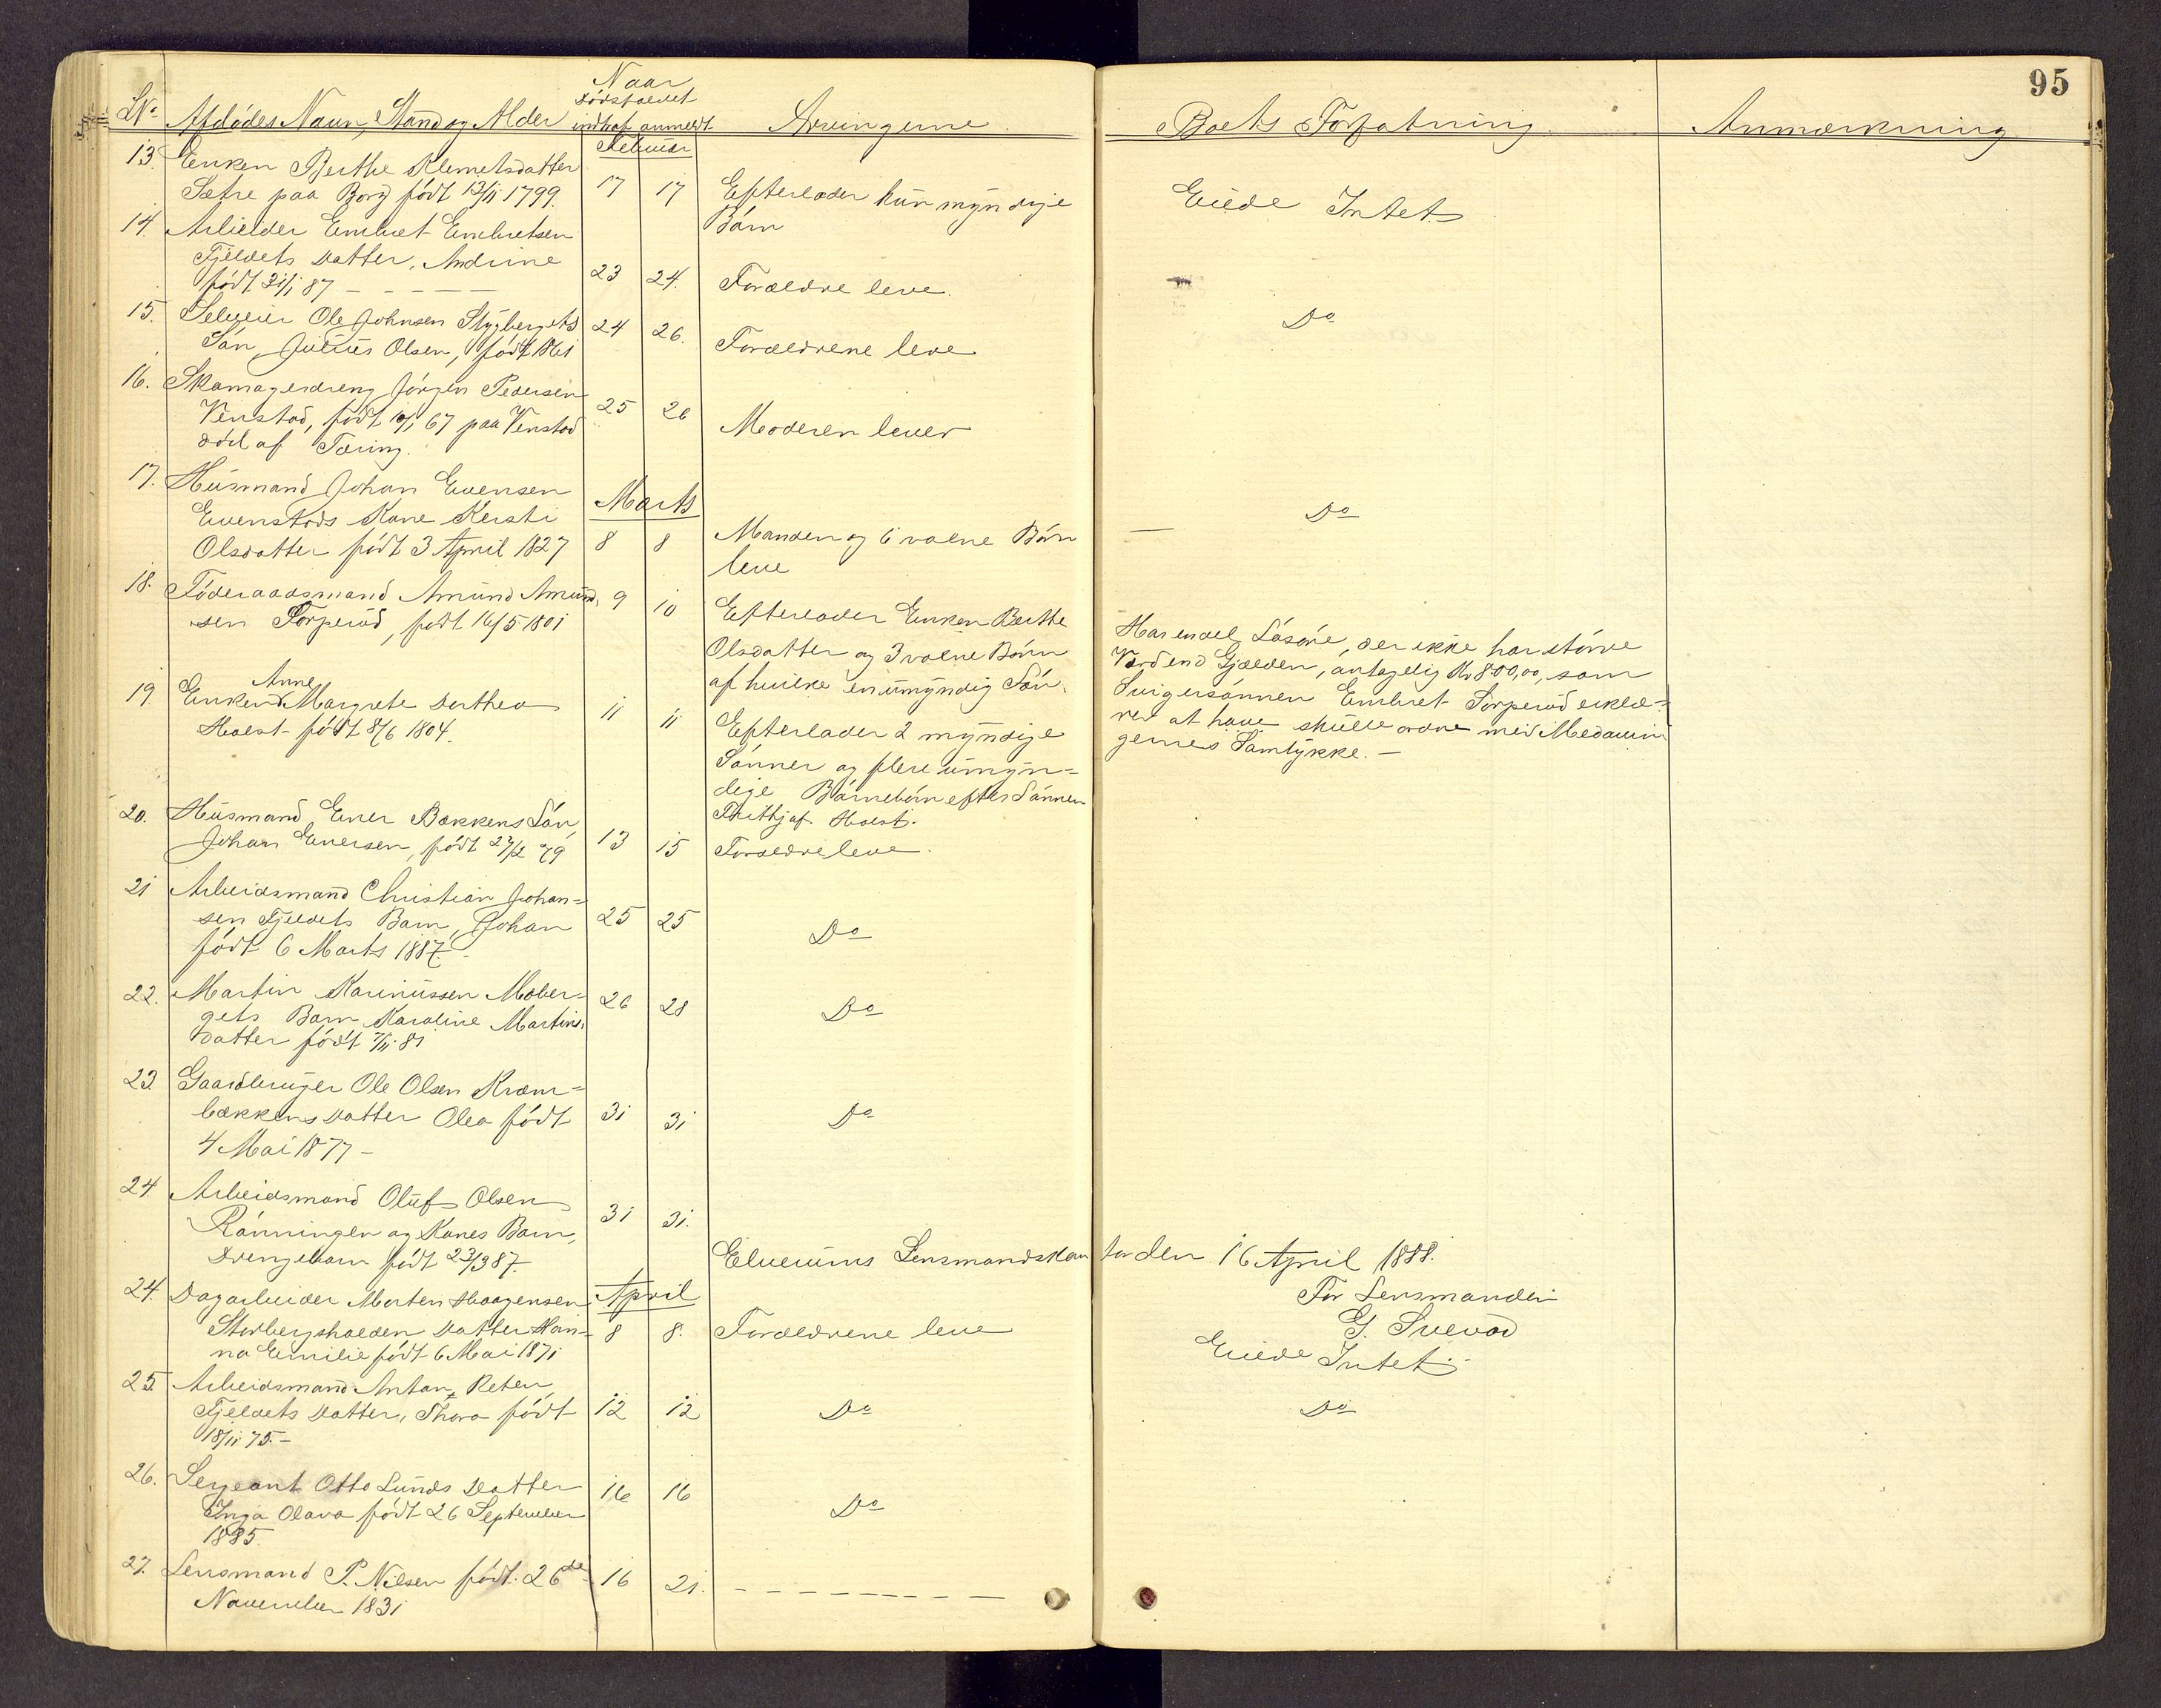 95
No Afdødes Navn, Stand og Alder
Naar
Dødsfaldet
indtraf anmeldt
Arvingerne
Boets Forfatning
Anmærkning
Februar
13. Enken Berthe Klemetsdatter
Sætre paa Borg født 13/11 1799.
17 17
Efterlader kun myndige
Børn
Eiede Intet
14. Arbeider Embret Embretsen
Fjeldets Datter, Andrine
født 31/1 87 - - - - -
23 24.
Forældre leve.
Do
15. Selveier Ole Johnsen Stygbergets
Søn, Julius Olsen, født 1861
24 26.
Forældrene leve
16. Skomagerdreng Jørgen Pedersen
Venstad, født 10/1 67 paa Venstad
død af Tæring.
25 26
Moderen lever
17. Husmand Johan Evensen
Evenstads Kone Kersti
Olsdatter født 3 April 1827
Marts
8 8
Manden og 6 voxne Børn
leve
Do
18. Føderaadsmand Amund Amund-
sen Torperud, født 16/5 1801
9 10
Efterlader Enken Berthe
Olsdatter og 3 voxne Børn
af hvilke en umyndig Søn.
Har endel Løsøre, der ikke har større
Værd end Gjælden, antagelig Kr 800,00, som
Svigersønnen Embret Torperud erklæ-
rer at have skulle ordne med Medarvin
gernes Samtykke. -
19. Enkend
Anne
Margrete Dorthea
Holst født 8/6 1804.
11 11
Efterlader 2 myndige
Sønner og flere umyn-
dige Børnebørn efter Sønnen
Frithjof Holst.
20. Husmand Ener Bakkens Søn,
Johan Enersen, født 27/2 79
13 15
Forældre leve.
21 Arbeidsmand Christian Johan-
sen Fjeldets Barn, Johan
født 6 Marts 1887. -
25 25
Do
22. Martin Karinussen Mober-
gets Barn Karoline Martins-
datter født 7/11 81
26 28
Do
23. Gaardbruger Ole Olsen Kram-
bækkens Datter Olea født
4 Mai 1877 -
31 31
Do
24 Arbeidsmand Oluf Olsen
Rønningen og Kones Barn,
Drengebarn født 23/3 87.
31 31.
Elverums Lensmandskontor den 16 April 1888.
For Lensmanden
G. Svevad
24. Dagarbeider Morten Haagensen
Storbergsholden Datter Han-
na Emilie født 6 Mai 1871
April
8 8.
Forældrene leve
Eiede Intet. -
25. Arbeidsmand Anton Peter
Fjeldets Datter, Thora født
18/11 75. -
12 12
Do
Do
26. Sergeant Otto Lunds Datter
Inga Olava født 26 September
1885.
16 16
Do
27. Lensmand P. Nilsen født. 26de
November 1831
16 21.
- - - - - - - -